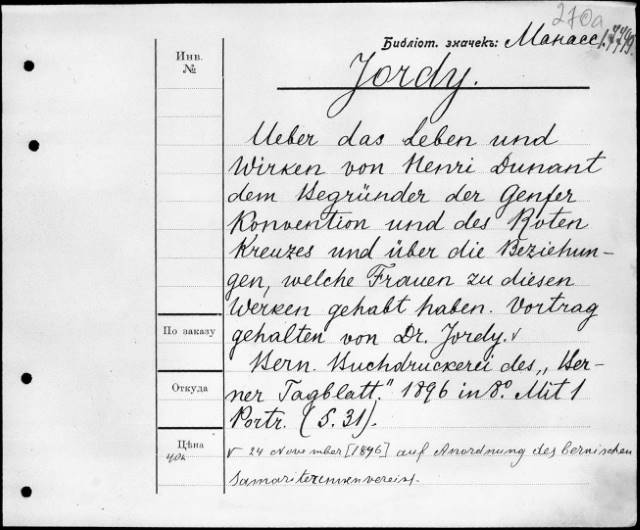 270a
Библіот. значекъ: Манасс.
Инв.
№
Jordy.
Ueber das Leben und
Wirken von Henri Dunant
dem Begründer der Genfer
Konvention und des Roten
Kreuzes und über die Beziehun-
gen, welche Frauen zu diesen
Werken gehabt haben. Vortrag
По заказу
gehalten von Dr. Jordy. v
Bern. Buchdruckerei des „Ber-
Откуда
ner Tagblatt." 1896 in 8º. Mit 1
Portr. (S. 31).
Цѣна
v 24 November [1896] auf Anordnung des bernischen
Samariterinnenvereins.